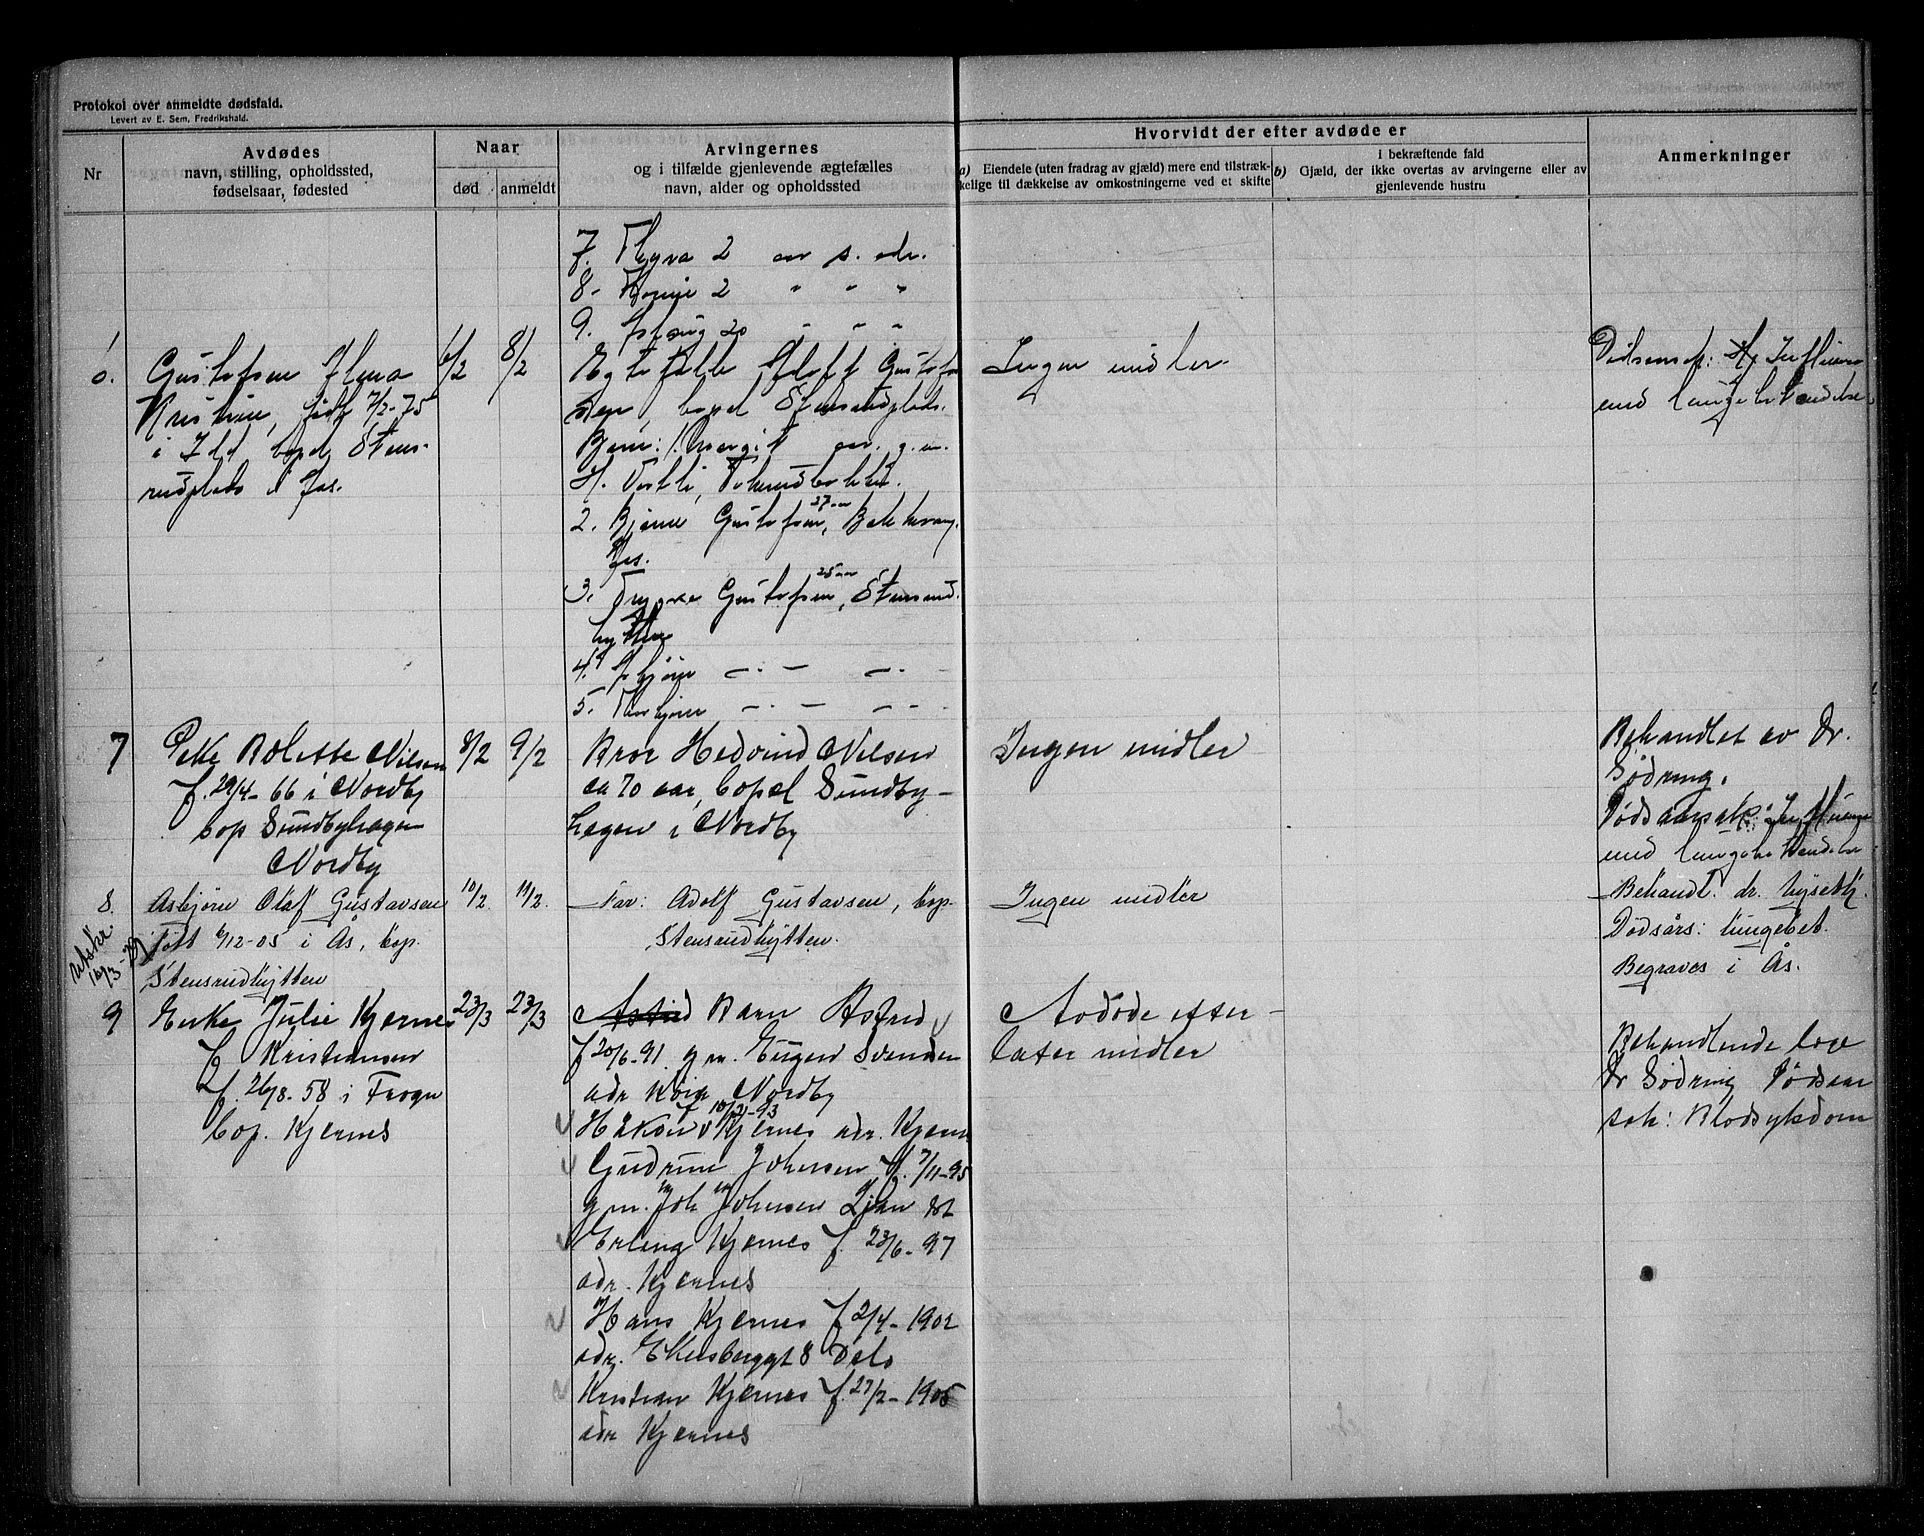 Protokol over anmeldte dødsfald.
Levert av E. Sem, Fredrikshald.
Nr
Avdødes
navn, stilling, opholdssted,
fødselsaar, fødested
Naar
død
anmeldt
Arvingernes
og i tilfælde gjenlevende ægtefælles
navn, alder og opholdssted
Hvorvidt der efter avdøde er
a) Eiendele (uten fradrag av gjæld) mere end tilstræk-
kelige til dækkelse av omkostningerne ved et skifte
b) I bekræftende fald
Gjæld, der ikke overtas av arvingerne eller av
gjenlevende hustru
Anmerkninger
7. 2 aar s. adr.
8. 2 " " "
9. " " "
6.
Gustafsen
Kristine, født 7/2-75
i Idd bopel Stens-
rudplads i Ås.
6/2
8/2
Egtefelle Adolf Gustaf
sen, bopel Stensrudplads.
Barn: 1. Margit aar. g.m.
H. Vestli,
2. Bjarne Gustafsen 27 aar,
Ås.
3. Trygve Gustafsen 25 aar, Stensrud
hytten
4. Asbjørn — . — — . —
5. Thorbjørn — . — — . —
Ingen midler
Dødsaarsak: Influensa
med lungebetendelse
7
Pike Bolette Nilsen
f. 29/4-66 i Nordby
bop Sundbyhagen
Nordby
8/2
9/2
Bror Hedvind Nilsen
ca 70 aar, bopel Sundby-
hagen i Nordby
Ingen midler
Behandlet av Dr.
Sødring.
Dødsaarsak: Influensa
med lungebetendelse
8.
utskr.
16/3-29
Asbjørn Olaf Gustavsen
født 6/12-05 i Ås, bop.
Stensrudhytten
10/2
11/2.
Far: Adolf Gustavsen, bop.
Stensrudhytten.
Ingen midler
Behandl. dr.
Dødsårs: lungebet.
Begraves i Ås.
9
Enke Julie Kjernes
f. Kristiansen
f. 26/8-58 i Frogn
bop. Kjernes
23/3
23/3
Astrid Barn Astrid
f 20/6-91 g m. Eugen Svendsen
adr Nordby
Håkon Kjernes f 10/2-93 adr. Kjernes
Gudrun Johnsen f. 7/11-95
g m. Joh Johnsen Ljan st
Erling Kjernes f. 23/6-97
adr. Kjernes
Hans Kjernes f 2/4-1902
adr. Ekebergt 8 Oslo
Kristian Kjernes f. 27/2-1905
adr Kjernes
Avdøde efter-
later midler
Behandlende læge
Dr Sødring Dødsaar
sak: Blodsykdom